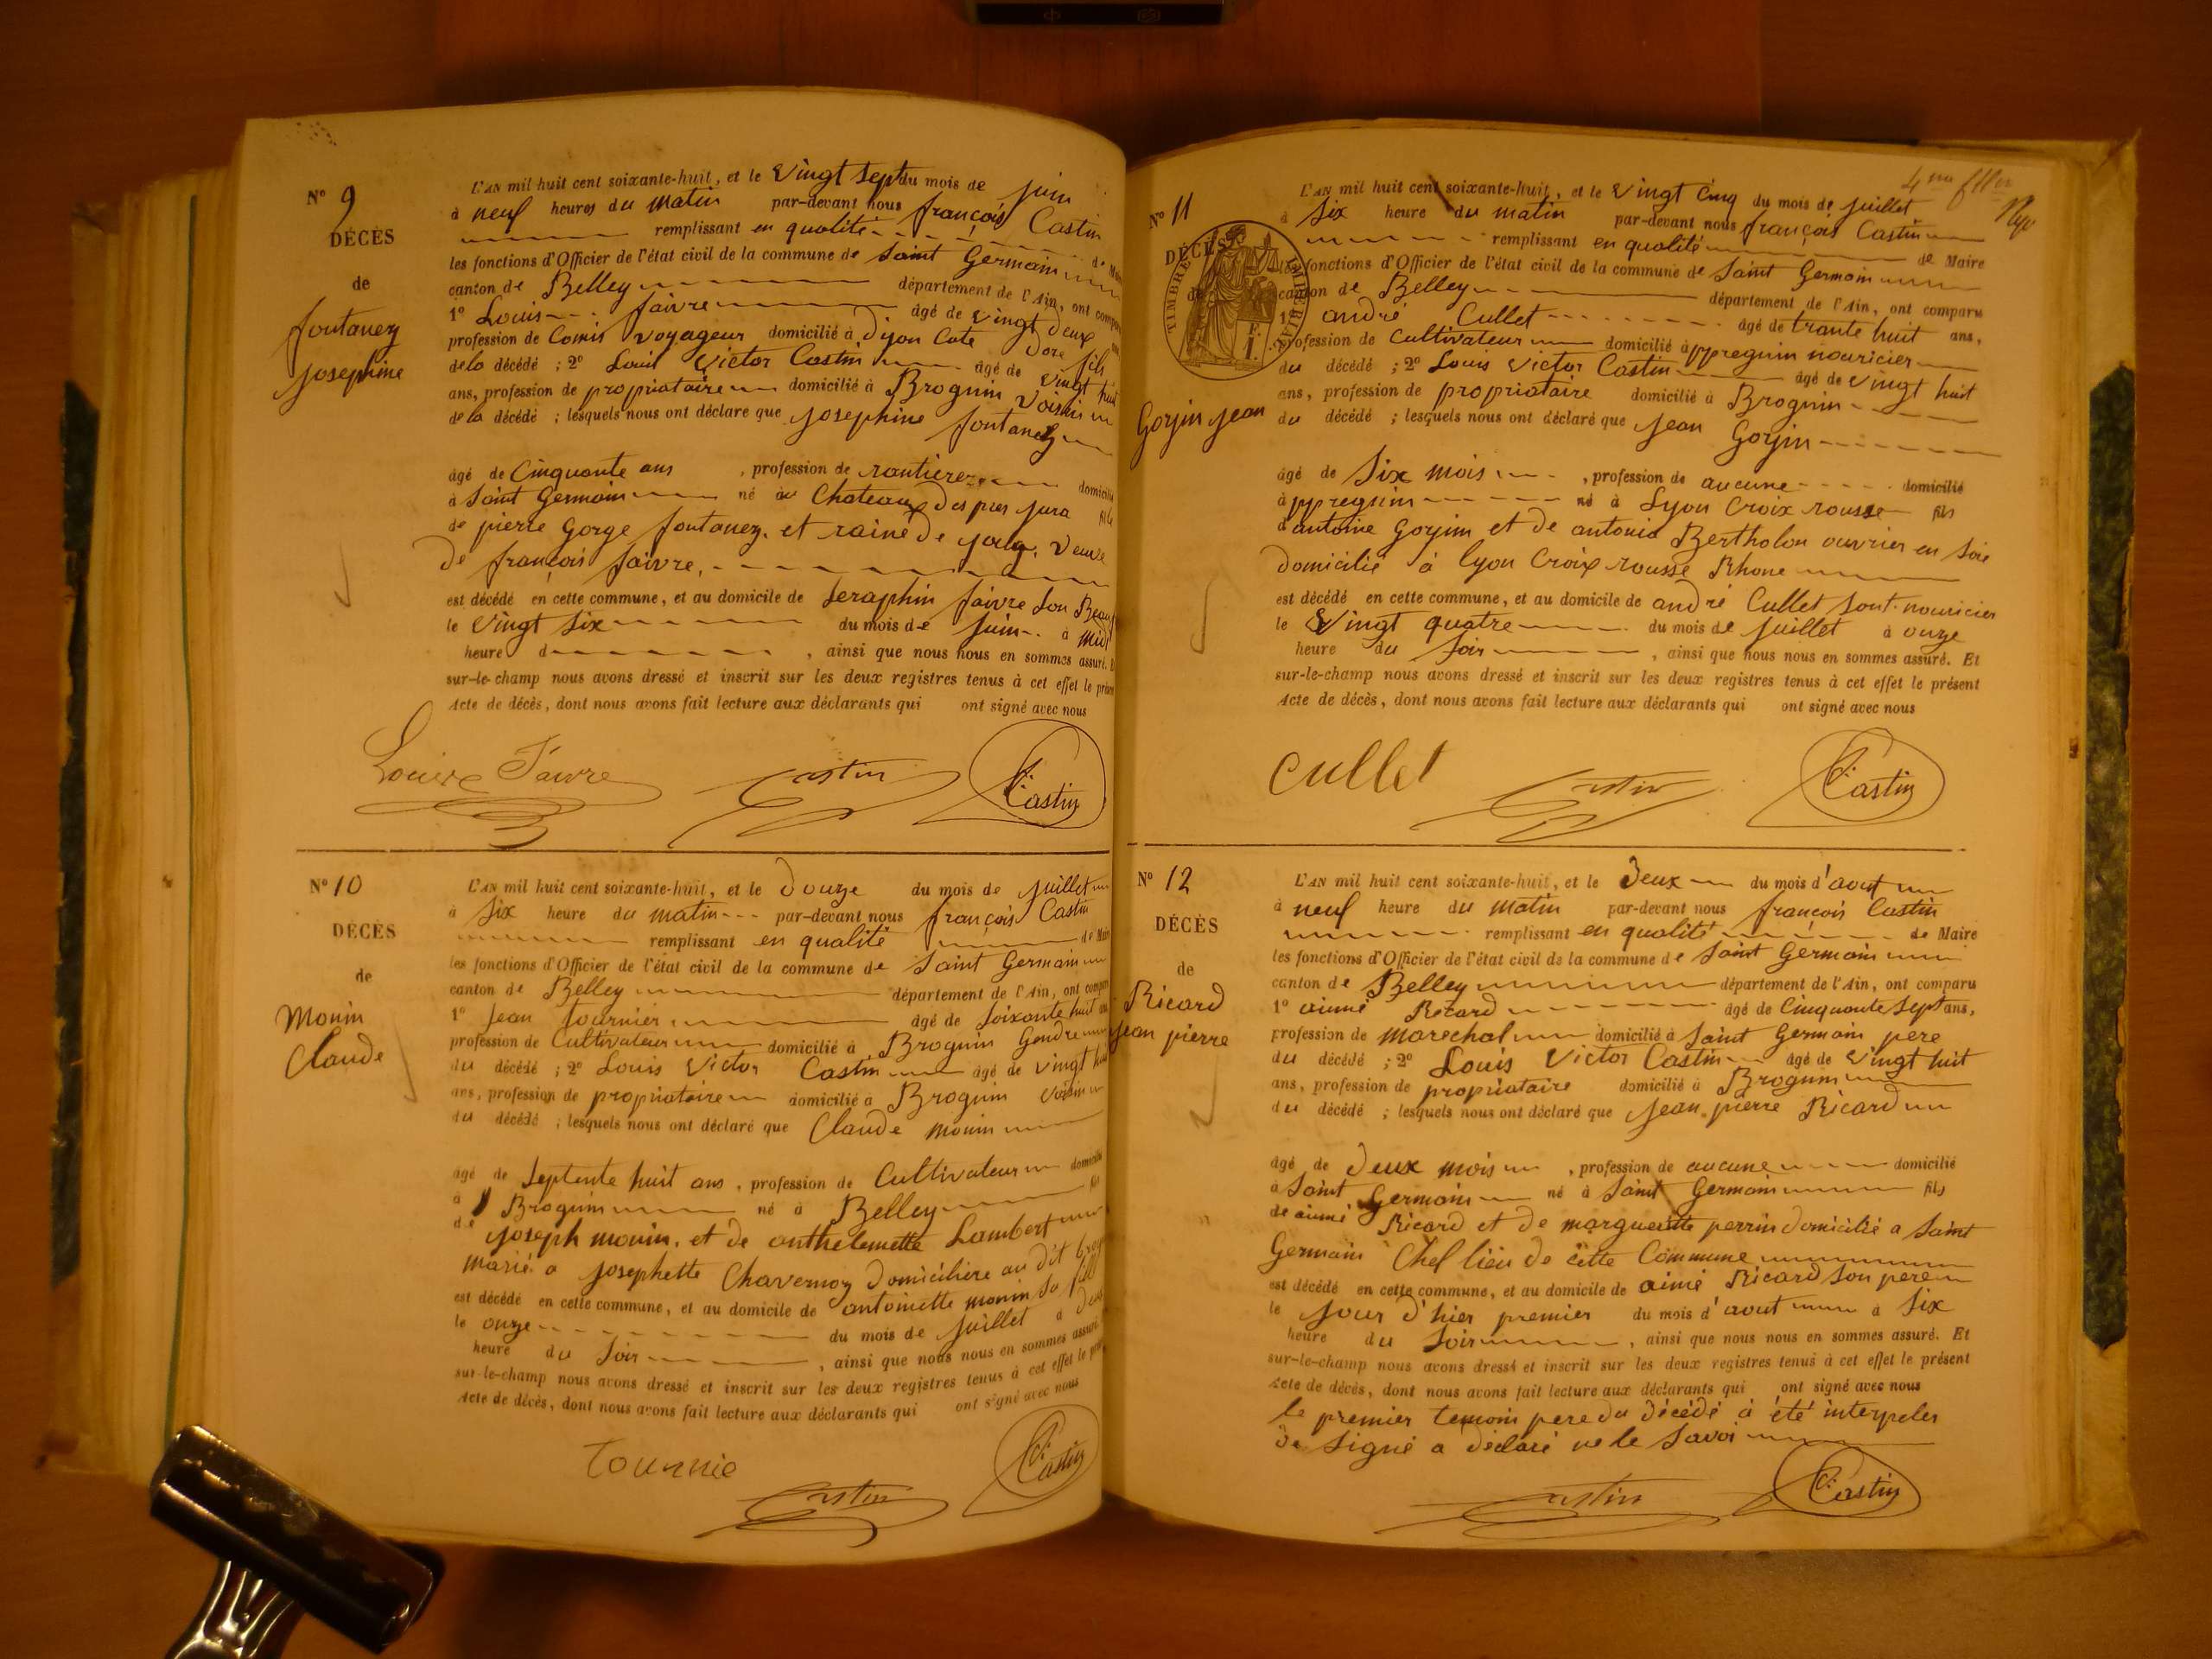 N° 9
DÉCÈS
de
fontanez
josephine
L'AN mil huit cent soixante-huit, et le Vingt Sept du mois de juin
à neuf heures du matin par-devant nous françois Castin
remplissant en qualité de Maire
les fonctions d'Officier de l'état civil de la commune de Saint Germain
canton de Belley département de l'Ain, ont comparu
1° Louis faivre âgé de vingt deux ans
profession de Comis voyageur domicilié à Dijon Cote Dore fils
de la décédé ; 2° Louis Victor Castin âgé de vingt huit
ans, profession de propriataire domicilié à Brognin voisin
de la décédé ; lesquels nous ont déclaré que josephine fontanez
âgé de Cinquante ans , profession de rantiere domicilié
à Saint Germain né au Chateau des pres jura fille
de pierre Gorge fontanez. et raine de Veuve
De françois faivre.
est décédé en cette commune, et au domicile de Seraphin faivre Son Beau
le Vingt Six du mois de juin à midi
heure d , ainsi que nous nous en sommes assuré. Et
sur-le-champ nous avons dressé et inscrit sur les deux registres tenus à cet effet le présent
Acte de décès, dont nous avons fait lecture aux déclarants qui ont signé avec nous
Faivre Castin Castin
N° 10
DÉCÈS
de
Monin
Claude
L'AN mil huit cent soixante-huit, et le Douze du mois de juillet
à Six heure du matin par-devant nous françois Castin
remplissant en qualité de Maire
les fonctions d'Officier de l'état civil de la commune de Saint Germain
canton de Belley département de l'Ain, ont comparu
1° jean fournier âgé de Soixante huit ans
profession de Cultivateur domicilié à Brognin Gendre
du décédé ; 2° Louis Victor Castin âgé de vingt huit
ans, profession de propriataire domicilié à Brognin voisin
du décédé ; lesquels nous ont déclaré que Claude monin
âgé de Septente huit ans , profession de Cultivateur domicilié
à Brognin né à Belley fils
de joseph monin. et de anthelemette Lambert
marié a josephette Chavernoz Domicilière au dit
est décédé en cette commune, et au domicile de antoinette monin Sa fille
le onze du mois de juillet à Deux
heure du Soir , ainsi que nous nous en sommes assuré.
sur-le-champ nous avons dressé et inscrit sur les deux registres tenus à cet effet le présent
Acte de décès, dont nous avons fait lecture aux déclarants qui ont signé avec nous
Tournie Castin Castin
N° 11
DÉCÈS
de
Gorjin jean
TIMBRE IMPERIAL
L'AN mil huit cent soixante-huit, et le Vingt Cinq du mois de juillet
à Six heure du matin par-devant nous françois Castin
remplissant en qualité de Maire
les fonctions d'Officier de l'état civil de la commune de Saint Germain
canton de Belley département de l'Ain, ont comparu
1° andré Cullet âgé de trante huit ans,
profession de Cultivateur domicilié à appregnin nouricier
du décédé ; 2° Louis Victor Castin âgé de Vingt huit
ans, profession de propriataire domicilié à Brognin
du décédé ; lesquels nous ont déclaré que jean Gorjin
âgé de Six mois , profession de aucune domicilié
à appregnin né à Lyon Croix rousse fils
d'antoine Gorjin et de antonia Bertholon ouvrier en Soie
Domicilié à Lyon Croix rousse Rhone
est décédé en cette commune, et au domicile de andré Cullet Sont nouricier
le Vingt quatre du mois de juillet à onze
heure du Soir , ainsi que nous nous en sommes assuré. Et
sur-le-champ nous avons dressé et inscrit sur les deux registres tenus à cet effet le présent
Acte de décès, dont nous avons fait lecture aux déclarants qui ont signé avec nous
Cullet Castin Castin
N° 12
DÉCÈS
de
Ricard
jean pierre
L'AN mil huit cent soixante-huit, et le Deux du mois d'aout
à neuf heure du matin par-devant nous françois Castin
remplissant en qualité de Maire
les fonctions d'Officier de l'état civil de la commune de Saint Germain
canton de Belley département de l'Ain, ont comparu
1° aimé Ricard âgé de Cinquante Sept ans,
profession de marechal domicilié à Saint Germain pere
du décédé ; 2° Louis Victor Castin âgé de Vingt huit
ans, profession de propriataire domicilié à Brognin
du décédé ; lesquels nous ont déclaré que jean pierre Ricard
âgé de Deux mois , profession de aucune domicilié
à Saint Germain né à Saint Germain fils
de aimé Ricard et de margueritte perrin domicilié a Saint
Germain Chef lieu de cette Commune
est décédé en cette commune, et au domicile de aimé Ricard Son pere
le jour d'hier premier du mois d'aout à Six
heure du Soir , ainsi que nous nous en sommes assuré. Et
sur-le-champ nous avons dressé et inscrit sur les deux registres tenus à cet effet le présent
Acte de décès, dont nous avons fait lecture aux déclarants qui ont signé avec nous
le premier temoin pere du Décédé à été interpeler
De Signé a déclaré ne le Savoi
Castin Castin